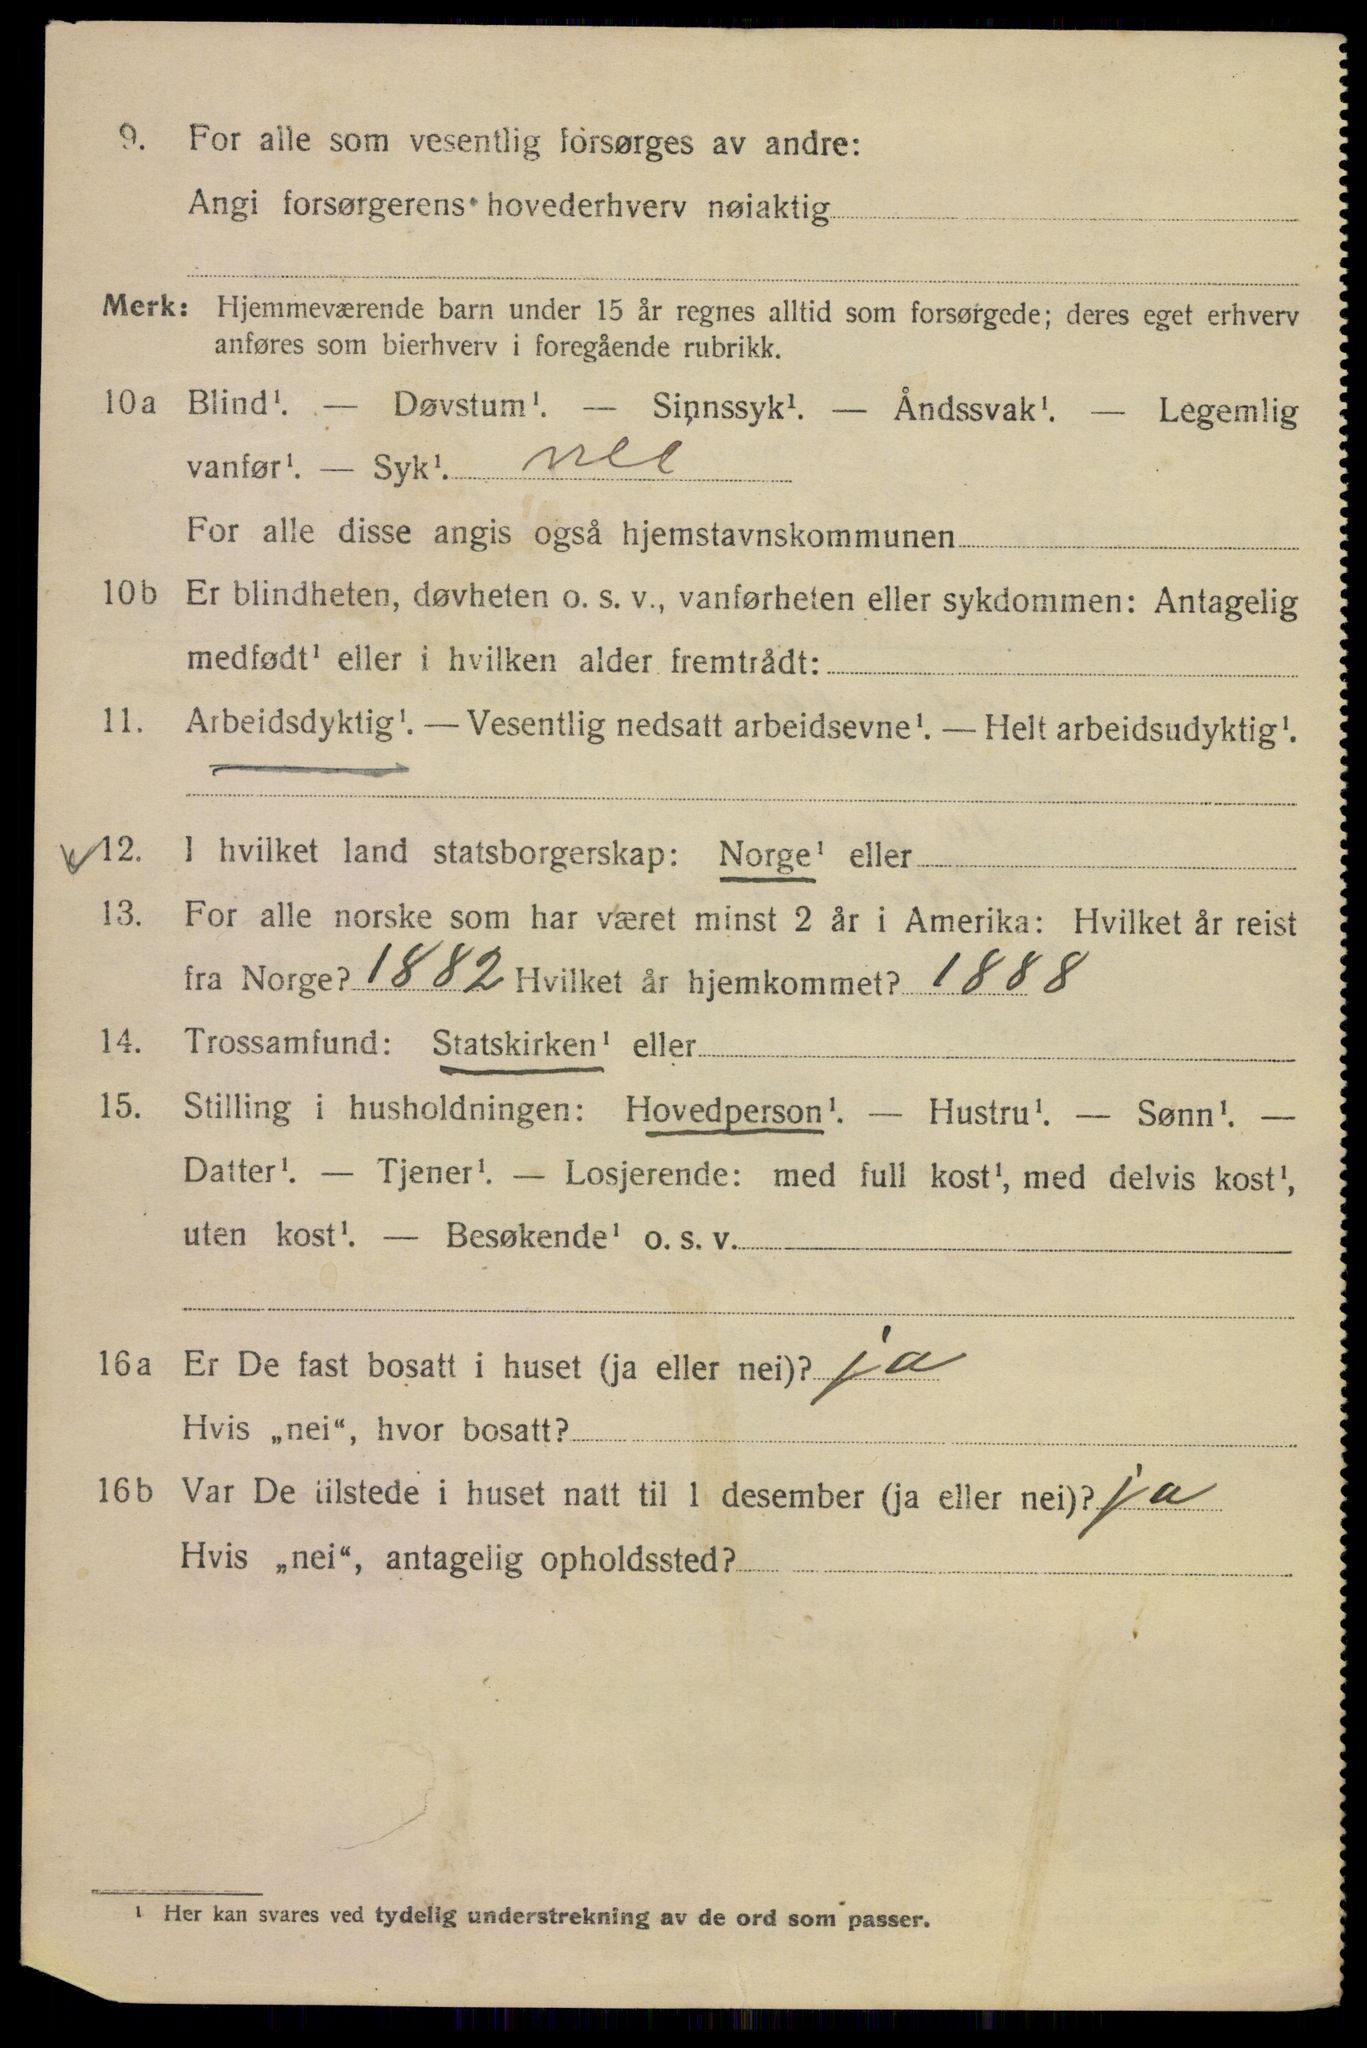 9. For alle som vesentlig forsørges av andre:
Angi forsørgerens hovederhverv nøiaktig
Merk: Hjemmeværende barn under 15 år regnes alltid som forsørgede; deres eget erhverv
anføres som bierhverv i foregående rubrikk.
10a Blind¹. — Døvstum¹. — Sinnssyk¹. — Åndssvak¹. — Legemlig
vanfør¹. — Syk¹. nei
For alle disse angis også hjemstavnskommunen
10b Er blindheten, døvheten o. s. v., vanførheten eller sykdommen: Antagelig
medfødt¹ eller i hvilken alder fremtrådt:
11. Arbeidsdyktig¹. — Vesentlig nedsatt arbeidsevne¹. — Helt arbeidsudyktig¹.
12. I hvilket land statsborgerskap: Norge¹ eller
13. For alle norske som har været minst 2 år i Amerika: Hvilket år reist
fra Norge? 1882 Hvilket år hjemkommet? 1888
14. Trossamfund: Statskirken¹ eller
15. Stilling i husholdningen: Hovedperson¹. — Hustru¹. — Sønn¹. —
Datter¹. — Tjener¹. — Losjerende: med full kost¹, med delvis kost¹,
uten kost¹. — Besøkende¹ o. s. v.
16a Er De fast bosatt i huset (ja eller nei)? ja
Hvis „nei“, hvor bosatt?
16b Var De tilstede i huset natt til 1 desember (ja eller nei)? ja
Hvis „nei“, antagelig opholdssted?
¹ Her kan svares ved tydelig understrekning av de ord som passer.